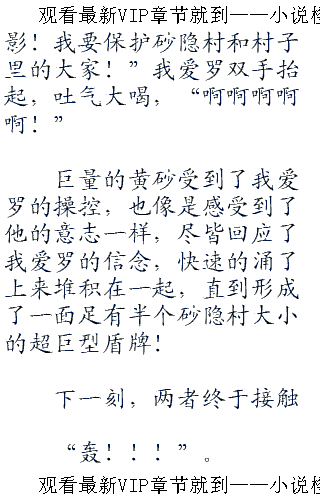 观看最新VIP章节就到——小说
影！我要保护砂隐村和村子
里的大家！”我爱罗双手抬
起，吐气大喝，“啊啊啊啊
啊！”
巨量的黄砂受到了我爱
罗的操控，也像是感受到了
他的意志一样，尽皆回应了
我爱罗的信念，快速的涌了
上来堆积在一起，直到形成
了一面足有半个砂隐村大小
的超巨型盾牌！
下一刻，两者终于接触
“轰！！！”。
观看最新VIP章节就到——小说